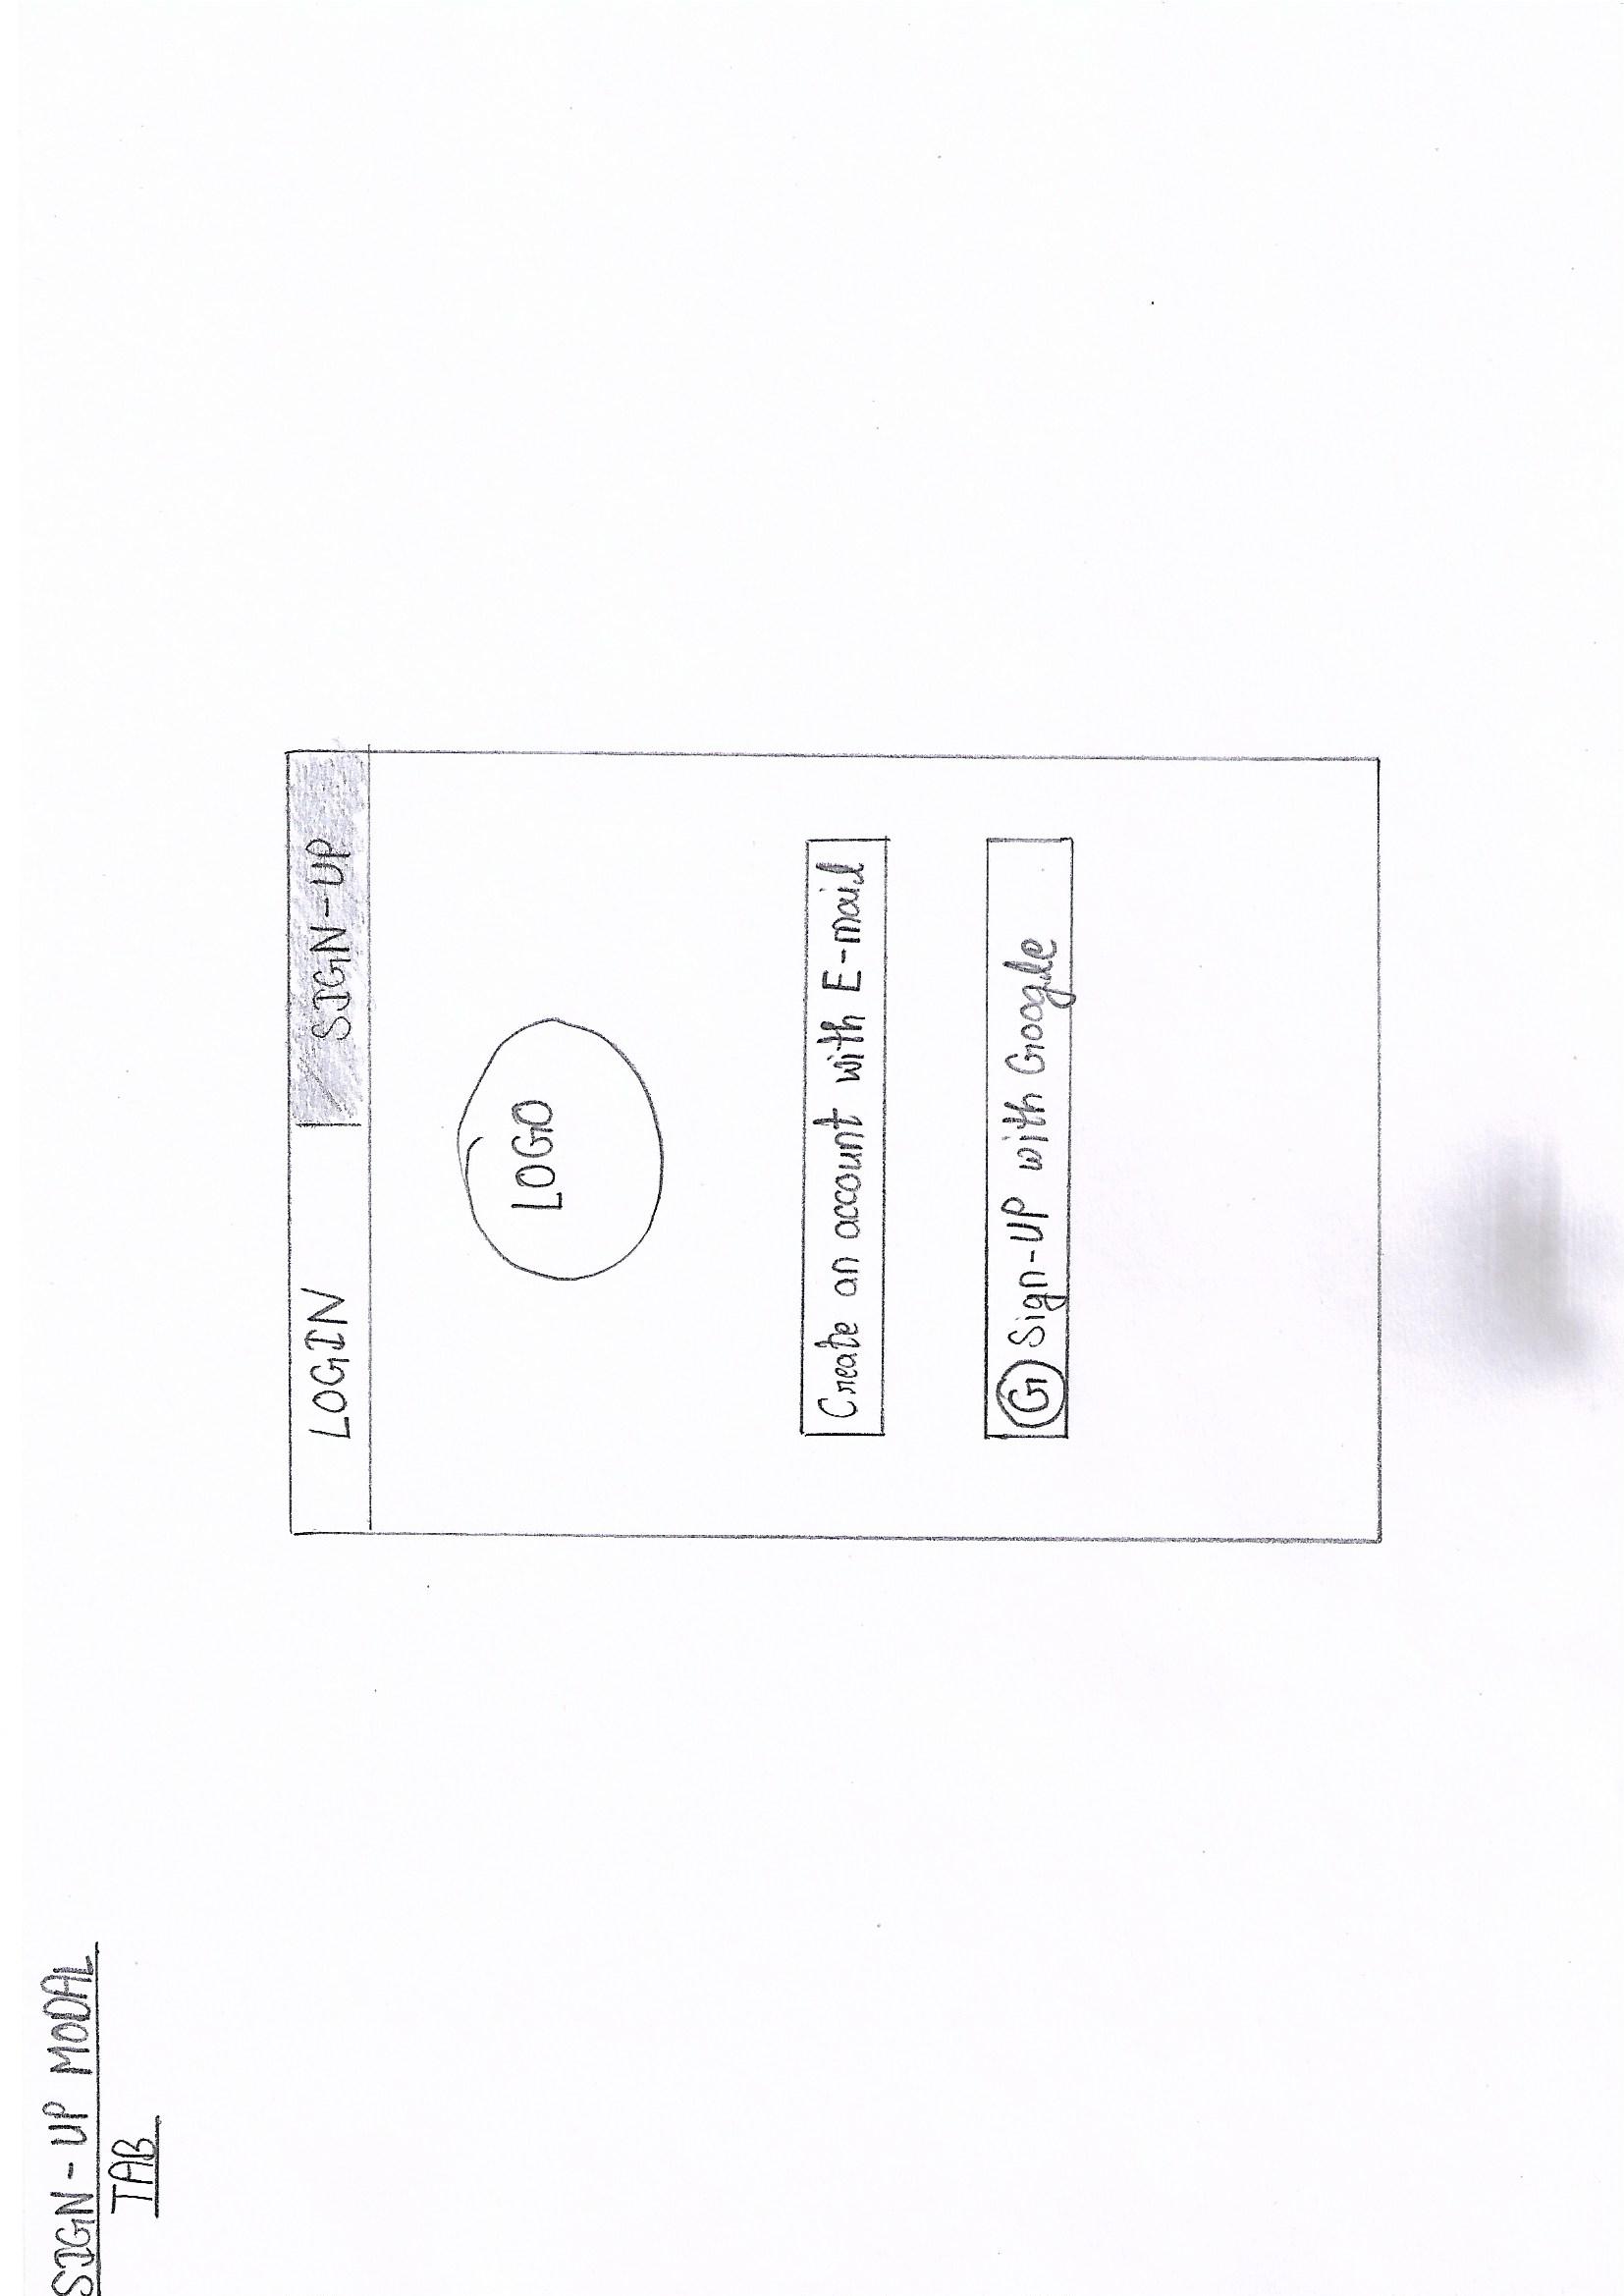 SIGN-UP MODAL
TAB
LOGIN
SIGN-UP
LOGO
Create an account with E-mail
G Sign-UP with Google